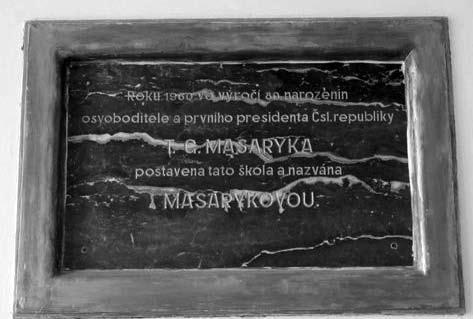 Roku 1930 ve výročí 80 narozenin
osvoboditele a prvního presidenta Čsl. republiky
T. G. MASARYKA
postavena tato škola a nazvána
MASARYKOVOU.